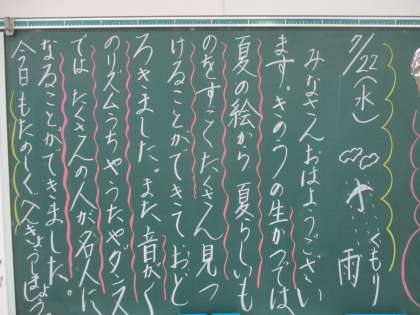 7/22(水) くもり 小雨
みなさんおはようござい
ます。きのうの生かつでは
夏の絵から夏らしいも
のをすごくたくさん見つ
けることができて おど
ろきました。また、音がく
のリズムうちやうたやダンス
では たくさんの人が名人に
なることができました。
今日もたのしくべんきょうしましょう。